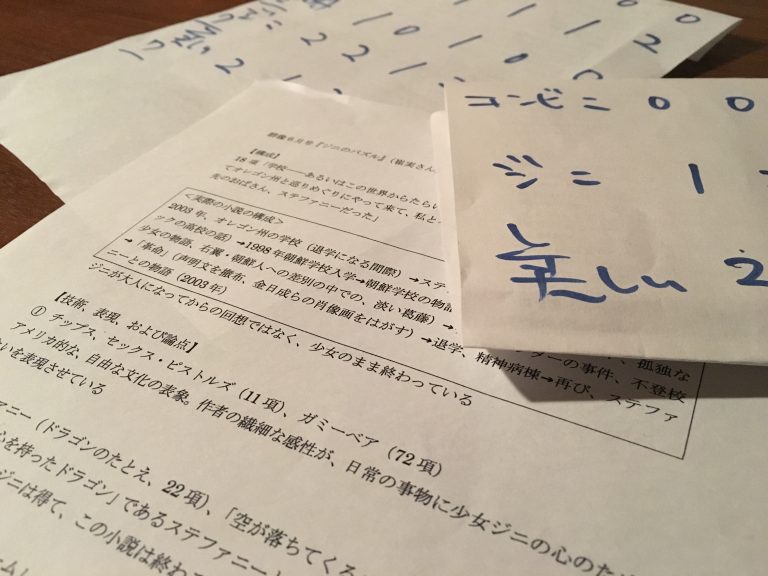 1 1 0 0
1 0 1 1 2
2 2 1 0
2 1
コンビニ 0 0
ジニ 1
美しい 2
群像6月号『ジニのパズル』(崔実さん
【構成】
18項「学校――あるいはこの世界からたらい
てオレゴン州と巡りめぐりにやって来て、私と
先のおばさん、ステファニーだった」
<実際の小説の構成>
2003年、オレゴン州の学校(退学になる間際)→ステ
ックの高校の話)→1998年朝鮮学校入学→朝鮮学校の物語
少女の物語、右翼・朝鮮人への差別の中での、淡い葛藤)→
→「革命」(声明文を散布、金日成らの肖像画をはがす)→退学、精神病棟→再び、ステファ
ニーとの物語(2003年)
ーの事件、不登校
孤独な
ジニが大人になってからの回想ではなく、少女のまま終わっている
【技術、表現、および論点】
① チップス、セックス・ピストルズ(11項)、ガミーベア(72項)
アメリカ的な、自由な文化の表象。作者の繊細な感性が、日常の事物に少女ジニの心のため
いを表現させている
ァニー(ドラゴンのたとえ、22項)、「空が落ちてくる
心を持ったドラゴン」であるステファニーと
ジニは得て、この小説は終わ